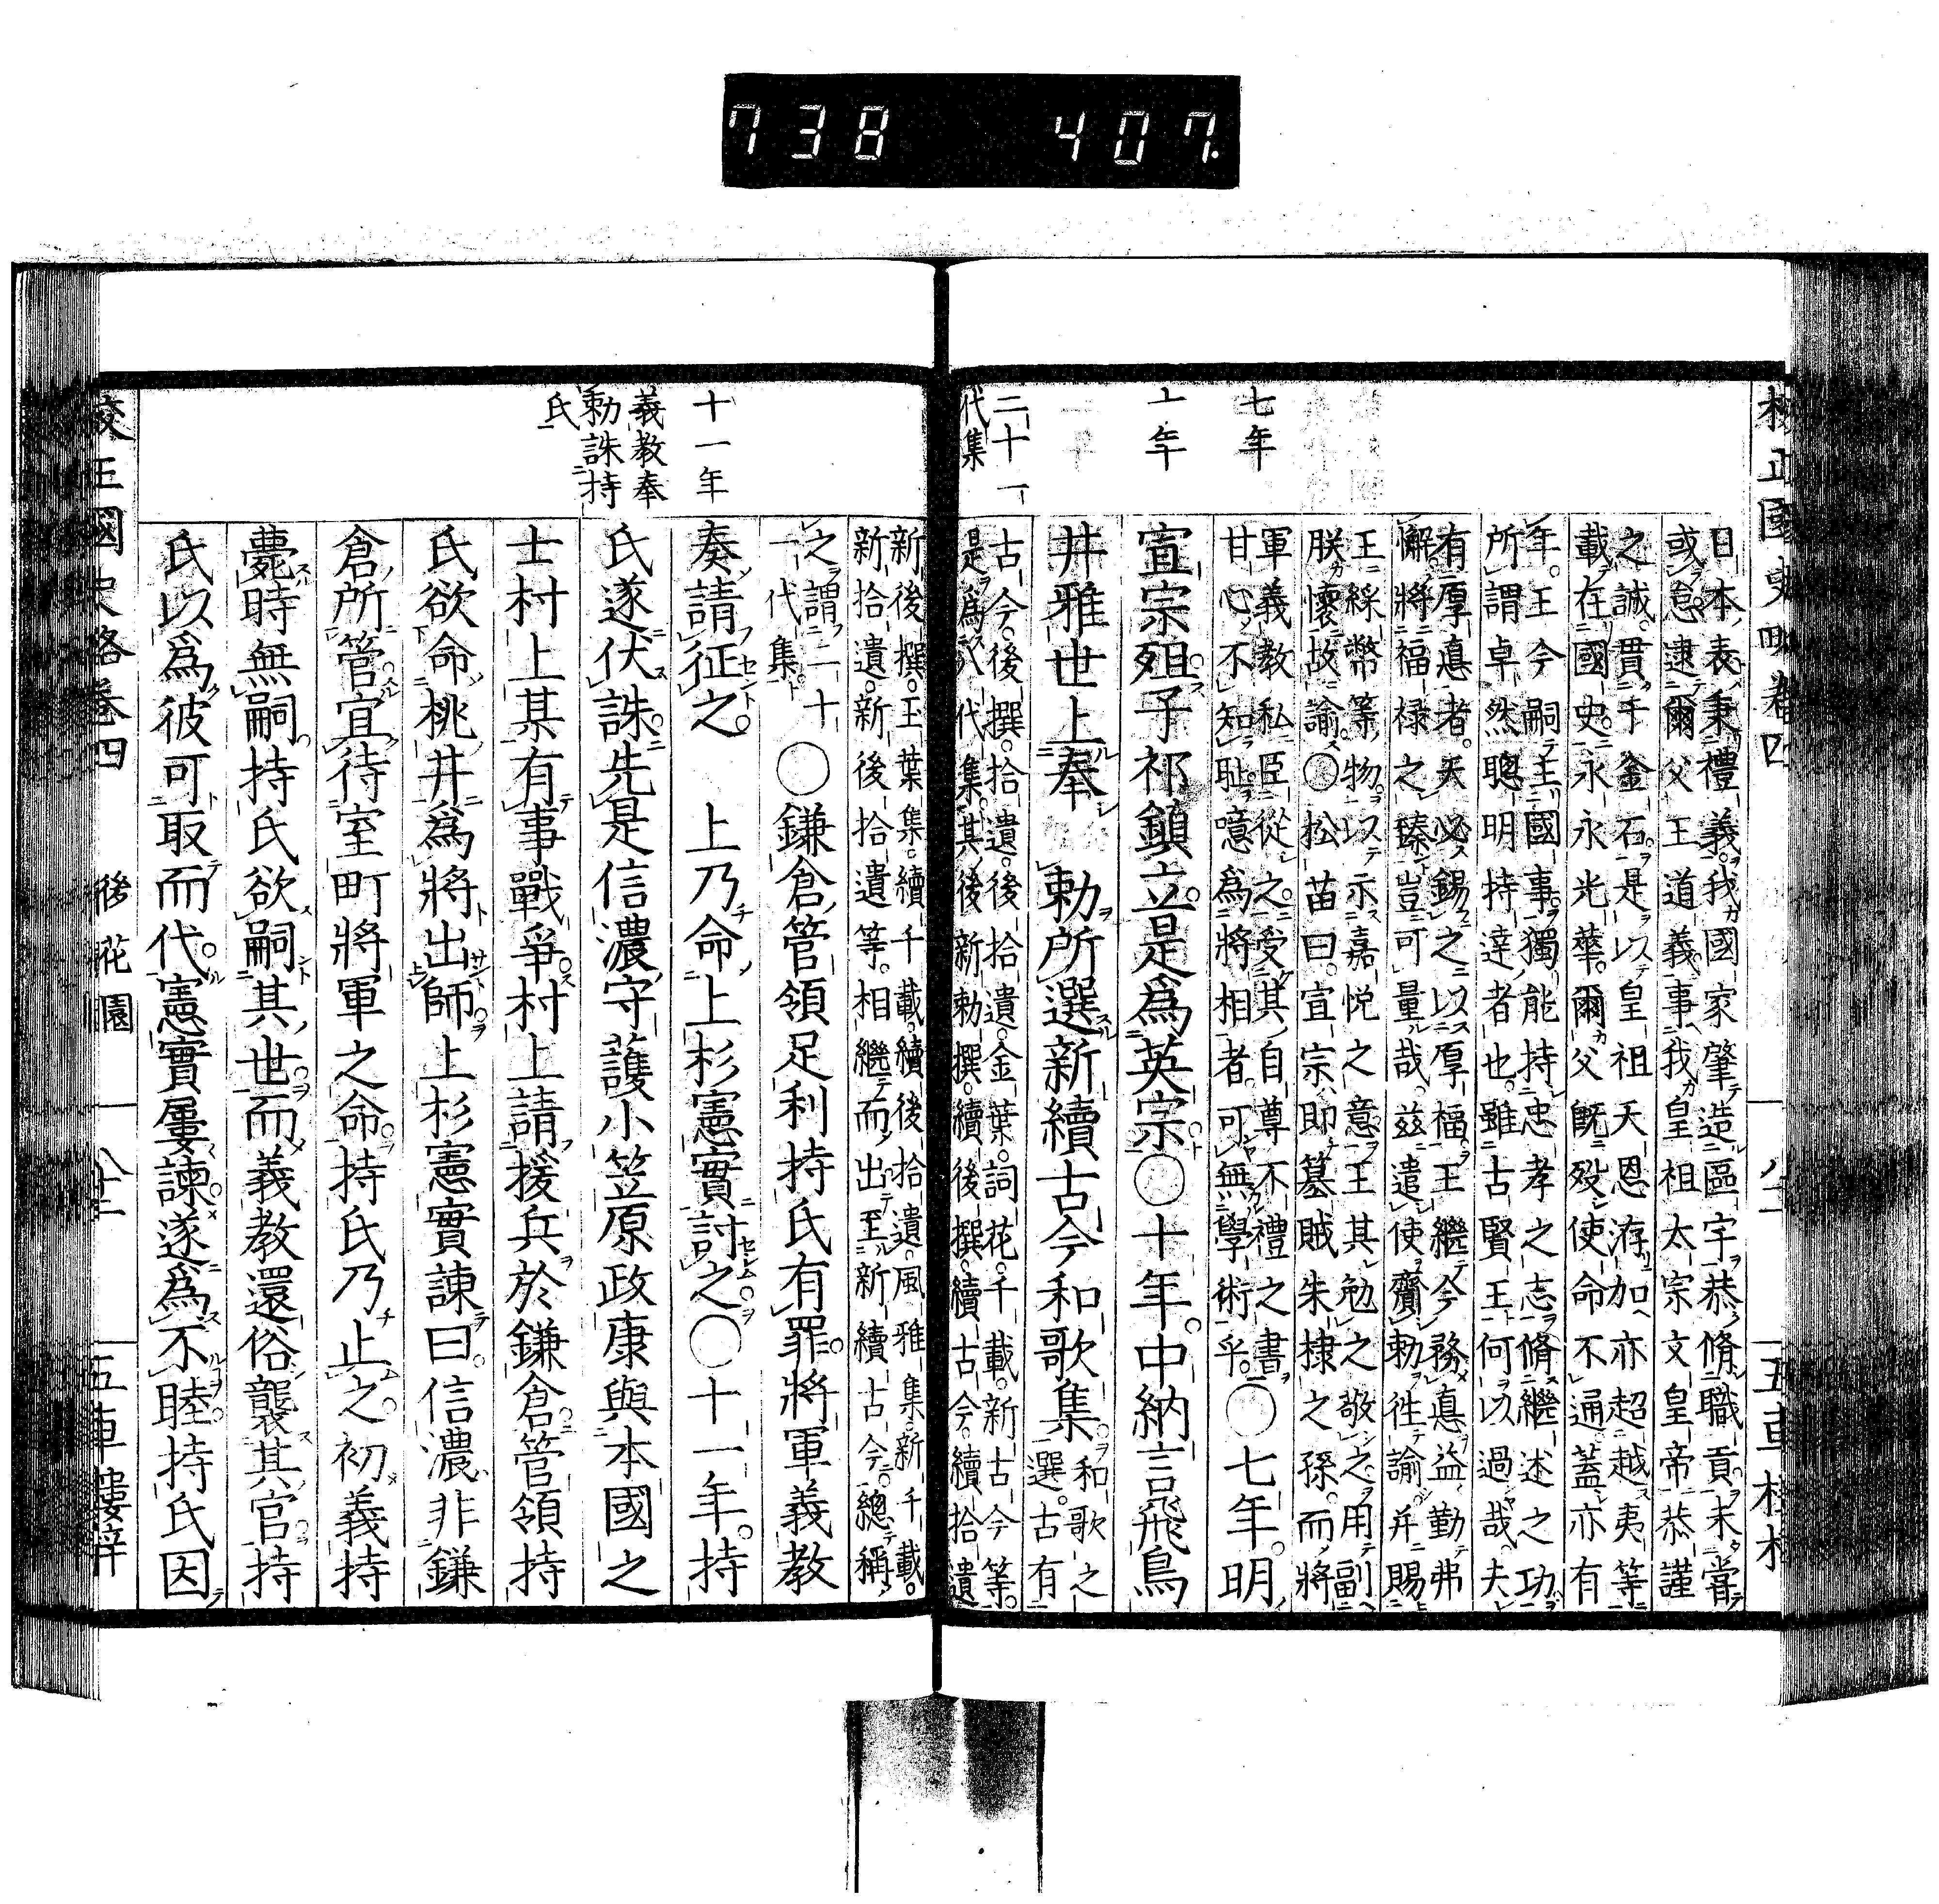 738 407.
校正國史略卷四
五車樓梓
七年
十年
二十一
代集
日本表秉禮義我國家肇造區宇恭脩職貢未甞
或怠逮爾父王道義事我皇祖太宗文皇帝恭謹
之誠貫乎金石是以皇祖天恩洊加亦超越夷等
載在國史永永光華爾父既歿使命不通蓋亦有
年王今嗣王國事獨能持忠孝之志脩繼述之功
所謂卓然聰明持達者也雖古賢王何以過哉夫
有厚悳者天必錫之以厚福王繼今務悳益勤弗
懈將福祿之臻豈可量哉茲遣使齎勅徃諭并賜
王綵幣等物以示嘉悦之意王其勉之敬之用副
朕懷故諭〇松苗曰宣宗即墓賊朱棣之孫而將
軍義教私臣從之受其自尊不禮之書
甘心不知耻噫爲將相者可無學術乎〇七年明
宣宗殂子祁鎮立是爲英宗〇十年中納言飛鳥
井雅世上奉 勅所選新續古今和歌集和歌之
選古有
古今後撰拾遺後拾遺金葉詞花千載新古今等
是爲八代集其後新勅撰續後撰續古今續拾遺
新後撰玉葉集續千載續後拾遺風雅集新千載
新拾遺新後拾遺等相繼而出至新續古今總稱
之謂二十
一代集〇鎌倉管領足利持氏有罪將軍義教
奏請征之 上乃命上杉憲實討之〇十一年持
氏遂伏誅先是信濃守護小笠原政康與本國之
士村上某有事戰爭村上請援兵於鎌倉管領持
氏欲命桃井爲將出師上杉憲實諫曰信濃非鎌
倉所管宜待室町將軍之命持氏乃止之初義持
薨時無嗣持氏欲嗣其世而義教還俗襲其官持
氏以爲彼可取而代憲實屢諫遂爲不睦持氏因
十一年
義教奉
勅誅持
氏
校正國史略卷四
後花園
五車樓梓